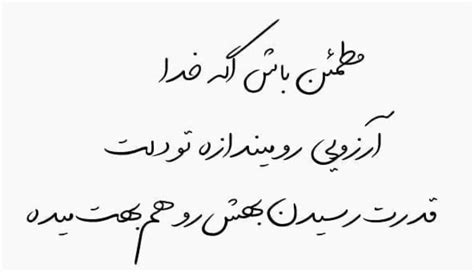 مطمئن باش اگه خدا
آرزویی رو میندازه تو دلت
قدرت رسیدن بهش رو هم بهت میده